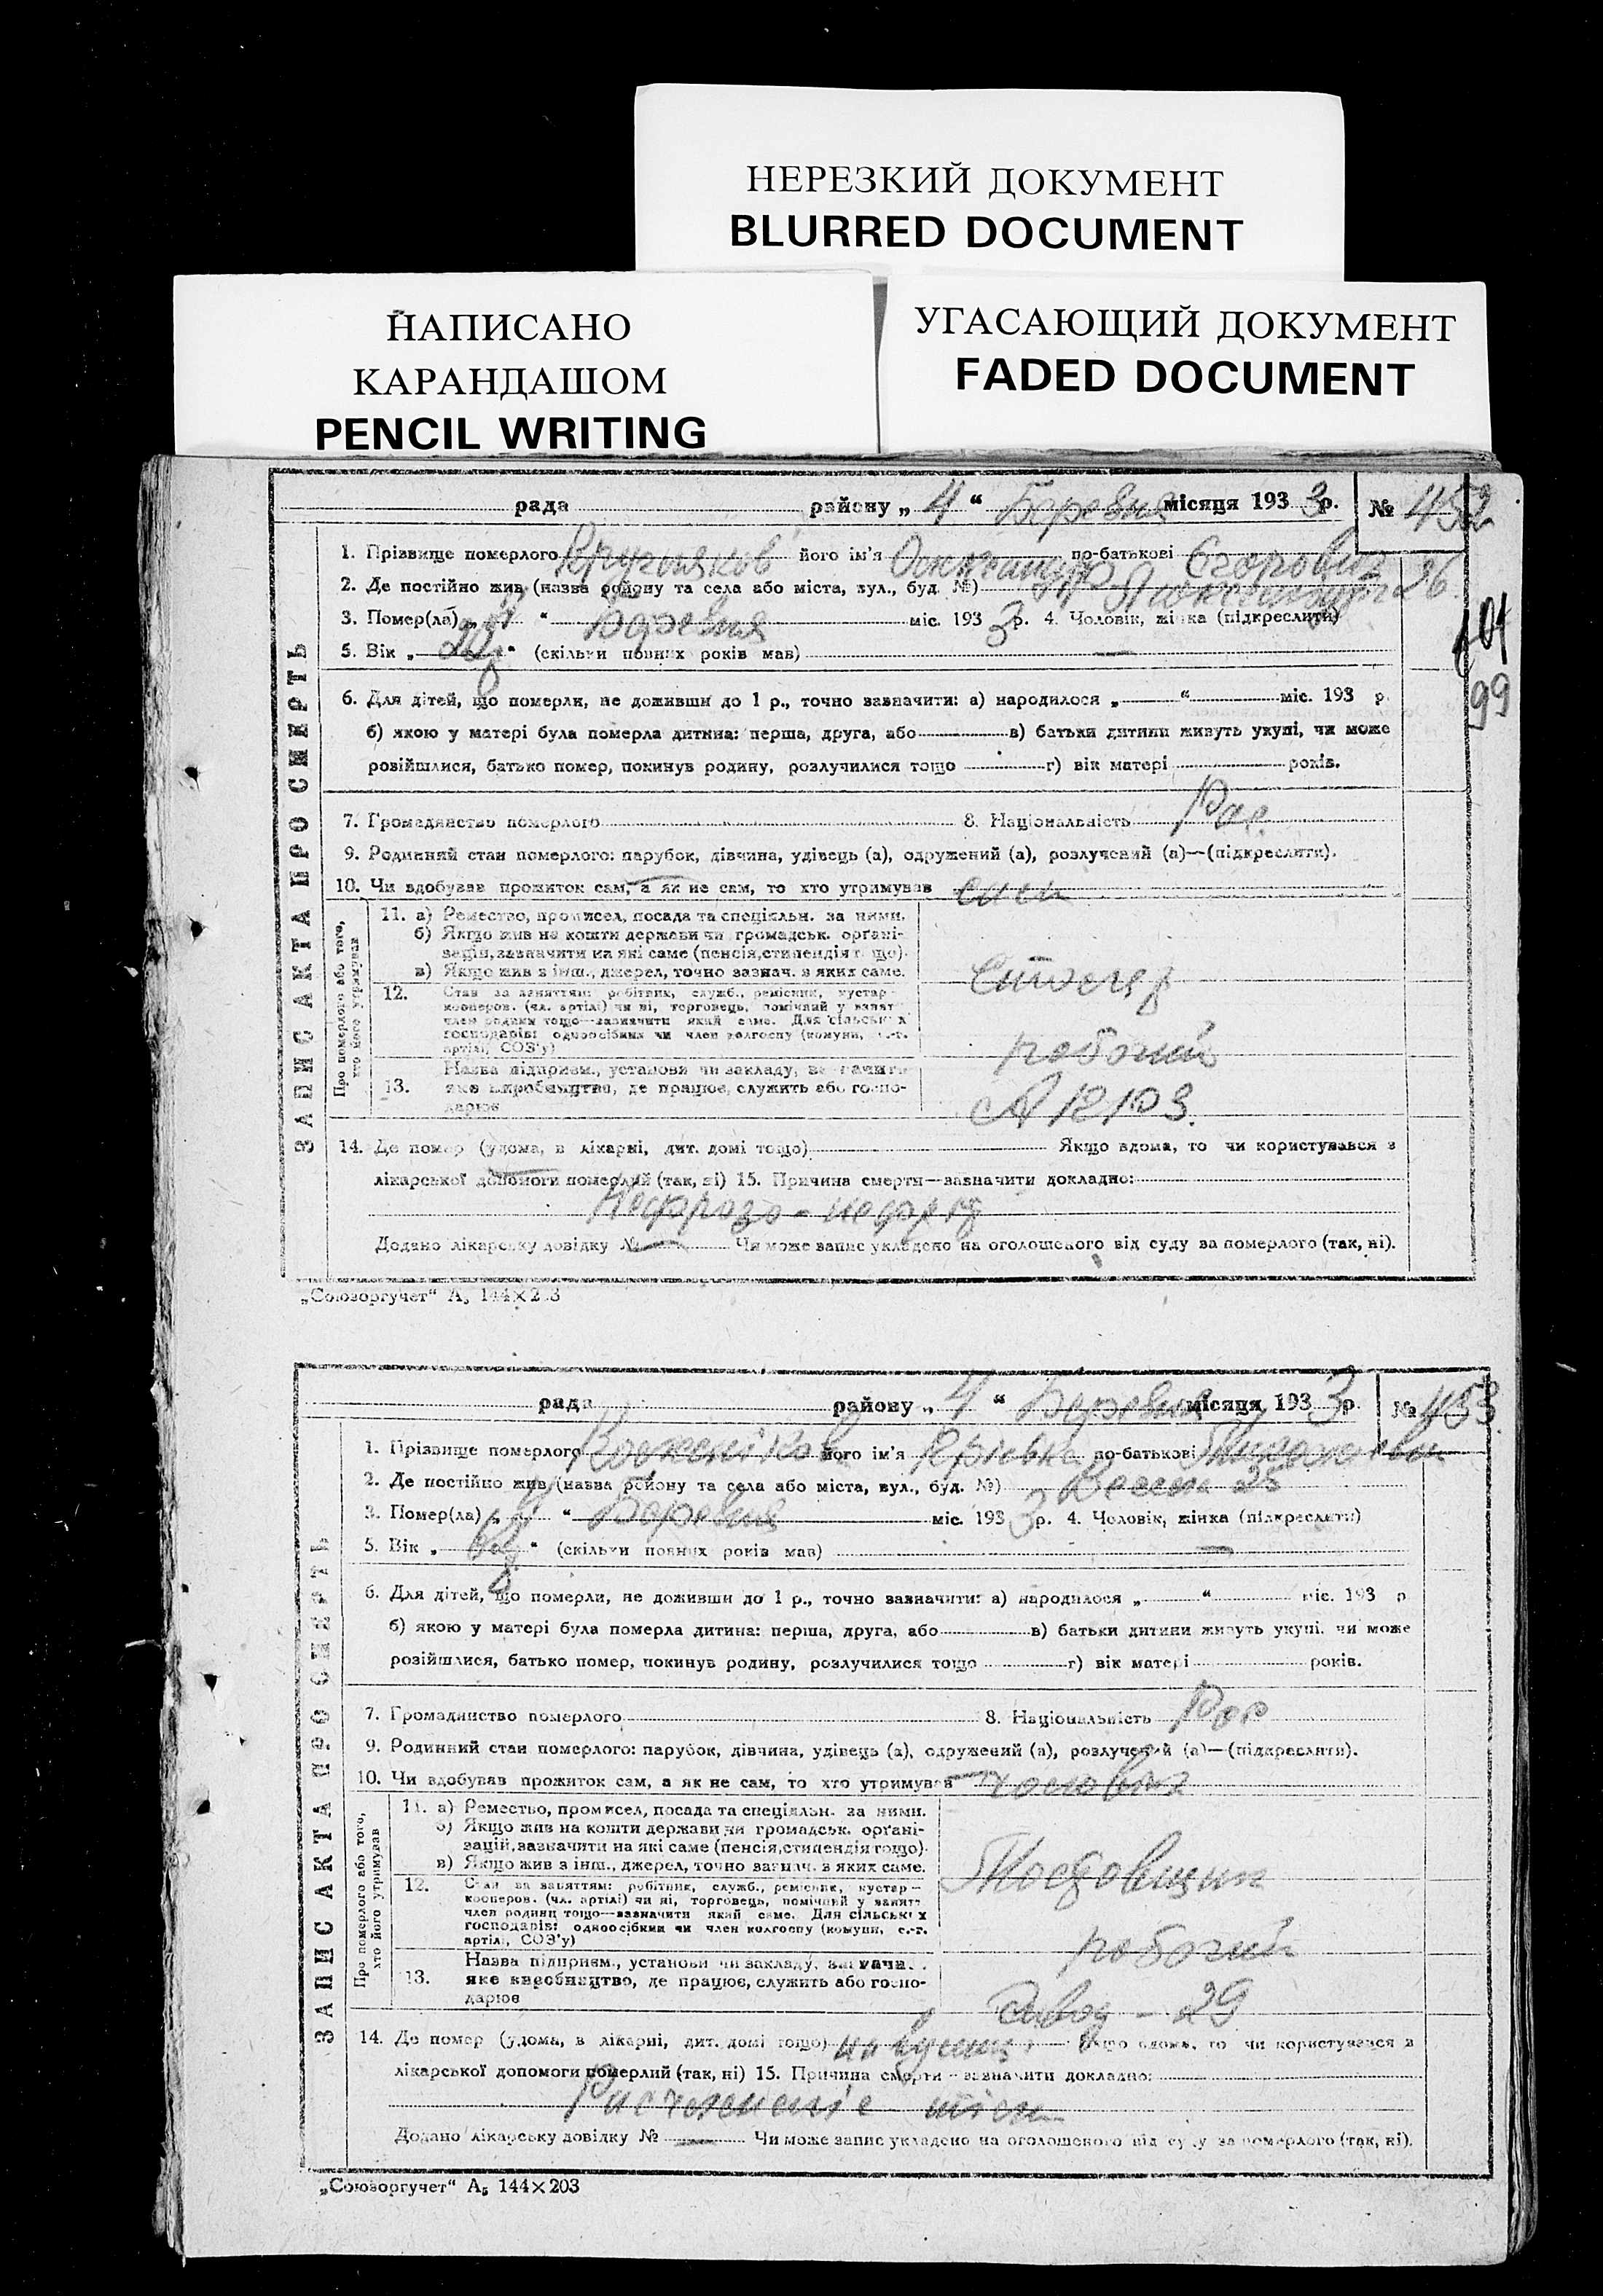 НЕРЕЗКИЙ ДОКУМЕНТ
BLURRED DOCUMENT
НАПИСАНО
КАРАНДАШОМ
PENCIL WRITING
УГАСАЮЩИЙ ДОКУМЕНТ
FADED DOCUMENT
рада району „ 4 “ Березня місяця 193 3 р. № 452
1. Прізвище померлого його ім'я по-батькові Єгорович
2. Де постійно жив (назва району та села або міста, вул., буд. №) 26
3. Помер(ла) „ 4 “ Березня міс. 193 3 р. 4. Чоловік, жінка (підкреслити)
5. Вік „ “ (скільки повних років мав)
101
99
6. Для дітей, що померли, не доживши до 1 р., точно зазначити: а) народилося „ “ міс. 193 р.
б) якою у матері була померла дитина: перша, друга, або в) батьки дитини живуть укупі, чи може
розійшлися, батько помер, покинув родину, розлучилися тощо г) вік матері років.
7. Громадянство померлого 8. Національність Рос.
9. Родинний стан померлого: парубок, дівчина, удівець (а), одружений (а), розлучений (а)—(підкреслити).
10. Чи здобував прожиток сам, а як не сам, то хто утримував
ЗАПИС АКТА ПРО СМЕРТЬ
Про померлого або того, хто його утримував
11. а) Ремество, промисел, посада та спеціяльн. за ними.
б) Якщо жив на кошти держави чи громадськ. органі-
зацій, зазначити на які саме (пенсія, стипендія тощо).
в) Якщо жив з інш., джерел, точно зазнач. з яких саме.
12. Стан за заняттям: робітник, служб., ремісник, кустар—
кооперов. (чл. артілі) чи ні, торговець, помічний у занятт
член родини тощо—зазначити який саме. Для сільських
господарів: одноосібник чи член колгоспу (комуни, с.-г.
артілі, СОЗ'у)
робочий
13. Назва підприєм., установи чи закладу, зазначити
яке виробництво, де працює, служить або госпо-
дарює
14. Де помер (удома, в лікарні, дит. домі тощо) Якщо вдома, то чи користувався з
лікарської допомоги померлий (так, ні) 15. Причина смерти—зазначити докладно:
Нефрозо - нефрит
Додано лікарську довідку № Чи може запис укладено на оголошеного від суду за померлого (так, ні).
„Союзоргучет“ А5 144×203
рада району „ 4 “ Березня місяця 193 3 р. № 453
1. Прізвище померлого його ім'я по-батькові
2. Де постійно жив (назва району та села або міста, вул., буд. №) 25
3. Помер(ла) „ 4 “ Березня міс. 193 3 р. 4. Чоловік, жінка (підкреслити)
5. Вік „ “ (скільки повних років мав)
6. Для дітей, що померли, не доживши до 1 р., точно зазначити: а) народилося „ “ міс. 193 р
б) якою у матері була померла дитина: перша, друга, або в) батьки дитини живуть укупі, чи може
розійшлися, батько помер, покинув родину, розлучилися тощо г) вік матері років.
7. Громадянство померлого 8. Національність Рос
9. Родинний стан померлого: парубок, дівчина, удівець (а), одружений (а), розлучений (а)—(підкреслити).
10. Чи здобував прожиток сам, а як не сам, то хто утримував чоловік
ЗАПИС АКТА ПРО СМЕРТЬ
Про померлого або того, хто його утримував
11. а) Ремество, промисел, посада та спеціяльн. за ними.
б) Якщо жив на кошти держави чи громадськ. органі-
зацій, зазначити на які саме (пенсія, стипендія тощо).
в) Якщо жив з інш., джерел, точно зазнач. з яких саме.
12. Стан за заняттям: робітник, служб., ремісник, кустар—
кооперов. (чл. артілі) чи ні, торговець, помічний у занятт
член родини тощо—зазначити який саме. Для сільських
господарів: одноосібник чи член колгоспу (комуни, с.-г.
артілі, СОЗ'у)
робочий
13. Назва підприєм., установи чи закладу, зазначити
яке виробництво, де працює, служить або госпо-
дарює
Завод - 29
14. Де помер (удома, в лікарні, дит. домі тощо) на вулиці Якщо вдома, то чи користувався з
лікарської допомоги померлий (так, ні) 15. Причина смерти—зазначити докладно:
Додано лікарську довідку № Чи може запис укладено на оголошеного від суду за померлого (так, ні).
„Союзоргучет“ А5 144×203